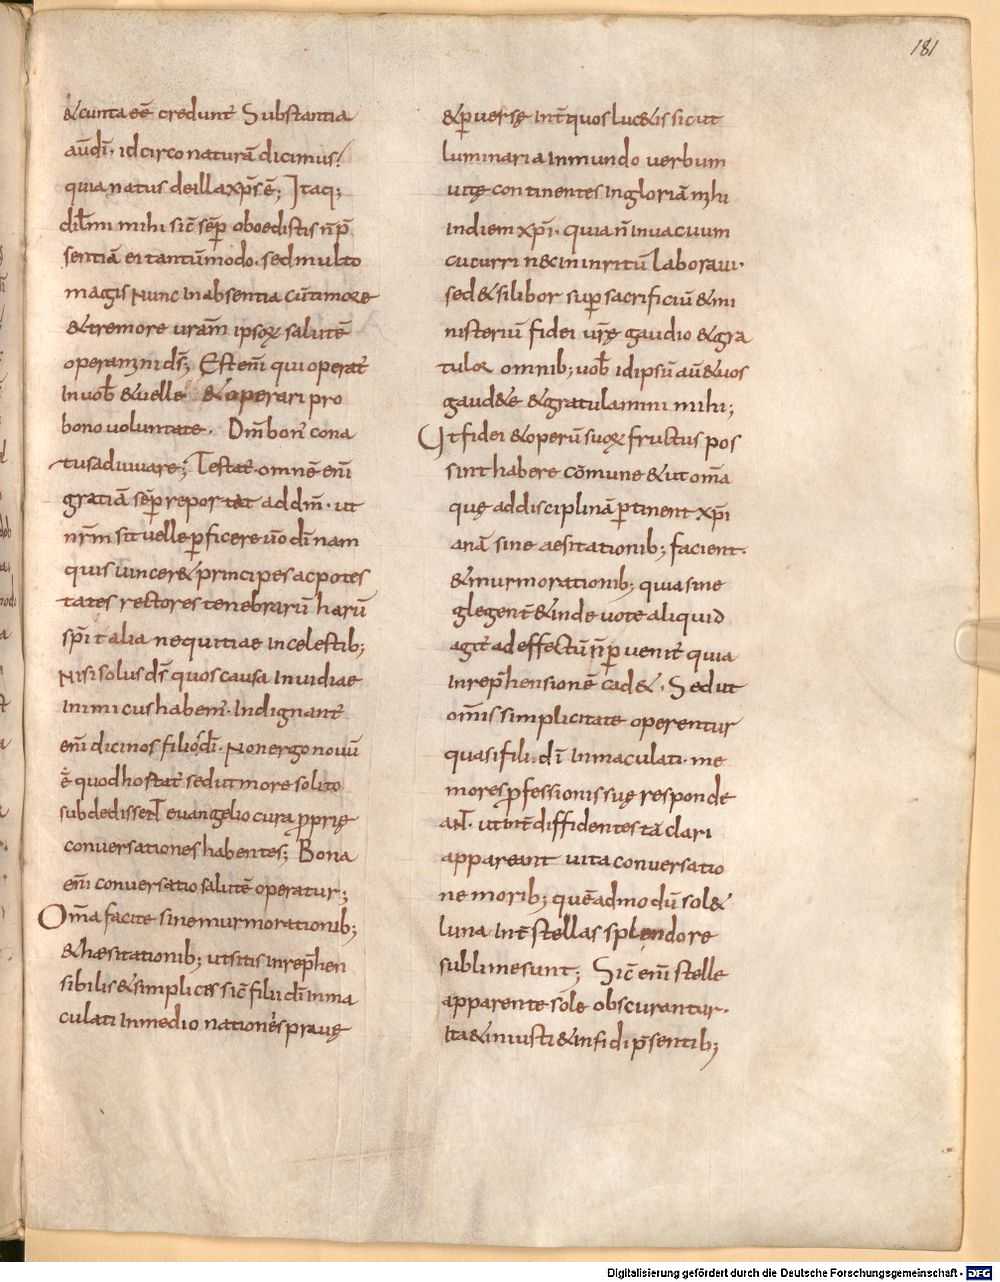 181
&cuncta eē credunt Substantia
aūdī· idcirco naturā dicimus/
quia natus de illa xp̄s ē; Itaq;
dilmi mihi sic̄ sēp oboedistis n̄ p̄
sentiā ei tantūmodo· sed multo
magis Nunc In absentia cū timore
& tremore uram̄ ipsoꝝ salutē
operamini ds̄; Est enī qui operat̄
In uob̄ & uelle & operari pro
bono uoluntate· Dm̄ bon̄ cona
tus adiuuare; Testat̄· omnē enī
gratiā sēp reportat ad dm̄· ut
nr̄m sit uelle ꝑficere ū dī nam
quis uincer& principes ac potes
tates rectores tenebrarū harū
sp̄italia nequitiae In celestib;
Nisi solus ds̄ quos causa Inuidiae
Inimicus haben̄t· Indignant̄
enī dici nos filios dī· Non ergo nouū
ē quod hostat̄ sed ut more solito
subdedissent euangelio cura ꝓprię
conuersationes habentes; Bona
enī conuersatio salutē operatur;
Om̄a facite sine murmorationib;
& hæsitationib; ut sitis Inrep̄hen
sibilis & simplices sic̄ filii dī Inma
culati In medio nationes prauę
& ꝑuersę Int̄ quos luc&is sicut
luminaria In mundo uerbum
uitę continentes In gloriā mihi
In diem xp̄i· quia n̄ In uacuum
cucurri n& in inritū laboraui·
sed & si libor sup̄ sacrificiū & mi
nisteriū fidei ur̄ę gaudio & gra
tulor omnib; uob̄ idipsū aū & uos
gaud&e & gratulamini mihi;
Ut fidei & operū suoꝝ fructus pos
sint habere cōmune & ut om̄a
quę ad disciplinā ꝑtinent xp̄i
anā sine aesitationib; facient·
& murmorationib; quia si ne
glegent̄ & inde uote aliquid
agit̄ ad effectū n̄ ꝑuenit̄ quia
In rep̄hensionē cad&· Sed ut
om̄is simplicitate operentur
quasi fili dī Inmaculati· me
mores ꝓfessionis suę responde
ant· ut int̄ diffidentes tā clari
appareant uita conuersatio
ne morib; quēadmodū sol &
luna Int̄ stellas splendore
sublime sunt; Sic̄ enī stelle
apparente sole obscurantur·
Ita & iniusti & infidi p̄sentib;
Digitalisierung gefördert durch die Deutsche Forschungsgemeinschaft - DFG